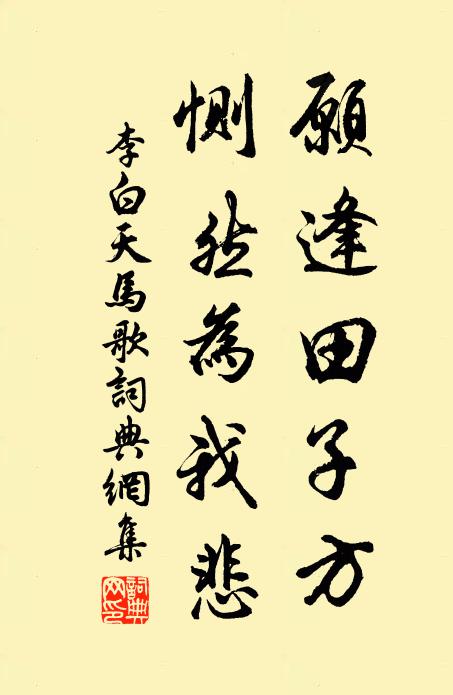 願逢田子方
惻然為我悲
李白天馬歌詞典網集
詞典网印